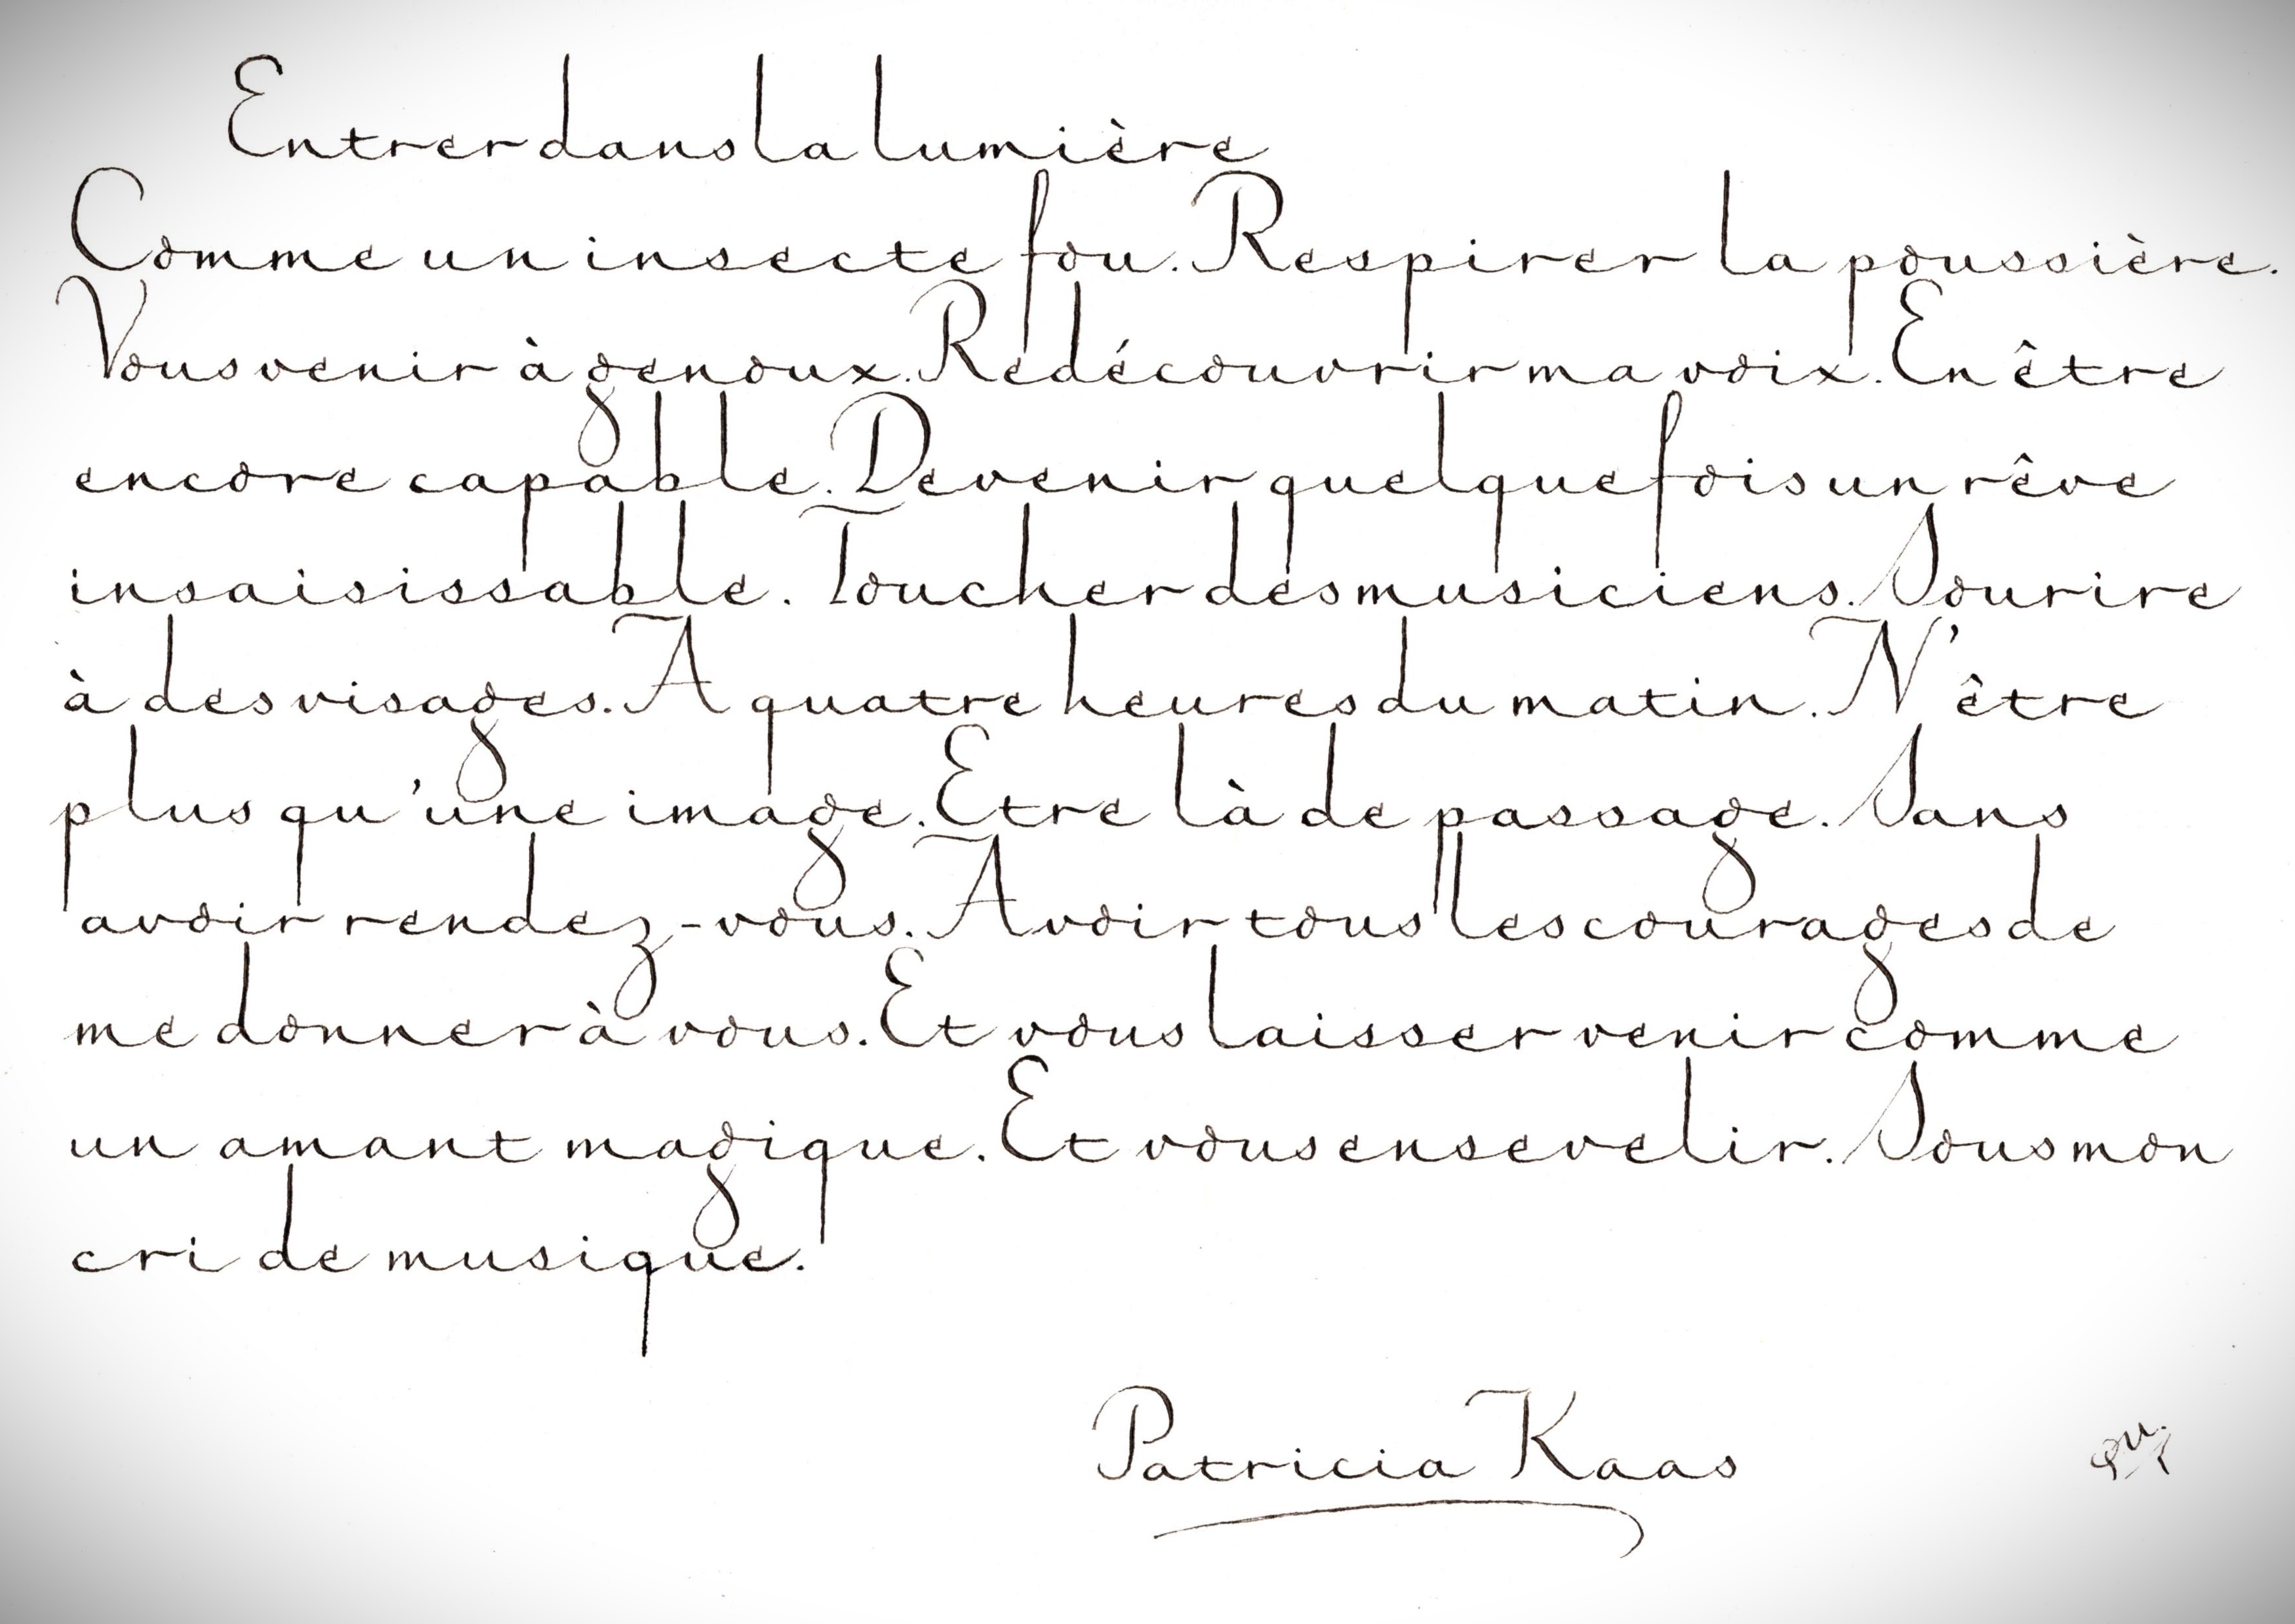 Entrer dans la lumière
Comme un insecte fou. Respirer la poussière.
Vous venir à genoux. Redécouvrir ma voix. En être
encore capable. Devenir quelque fois un rêve
insaisissable. Toucher des musiciens. Sourire
à des visages. A quatre heures du matin. N'être
plus qu'une image. Etre là de passage. Sans
avoir rendez-vous. Avoir tous les courages de
me donner à vous. Et vous laisser venir comme
un amant magique. Et vous ensevelir. Sous mon
cri de musique.
Patricia Kaas